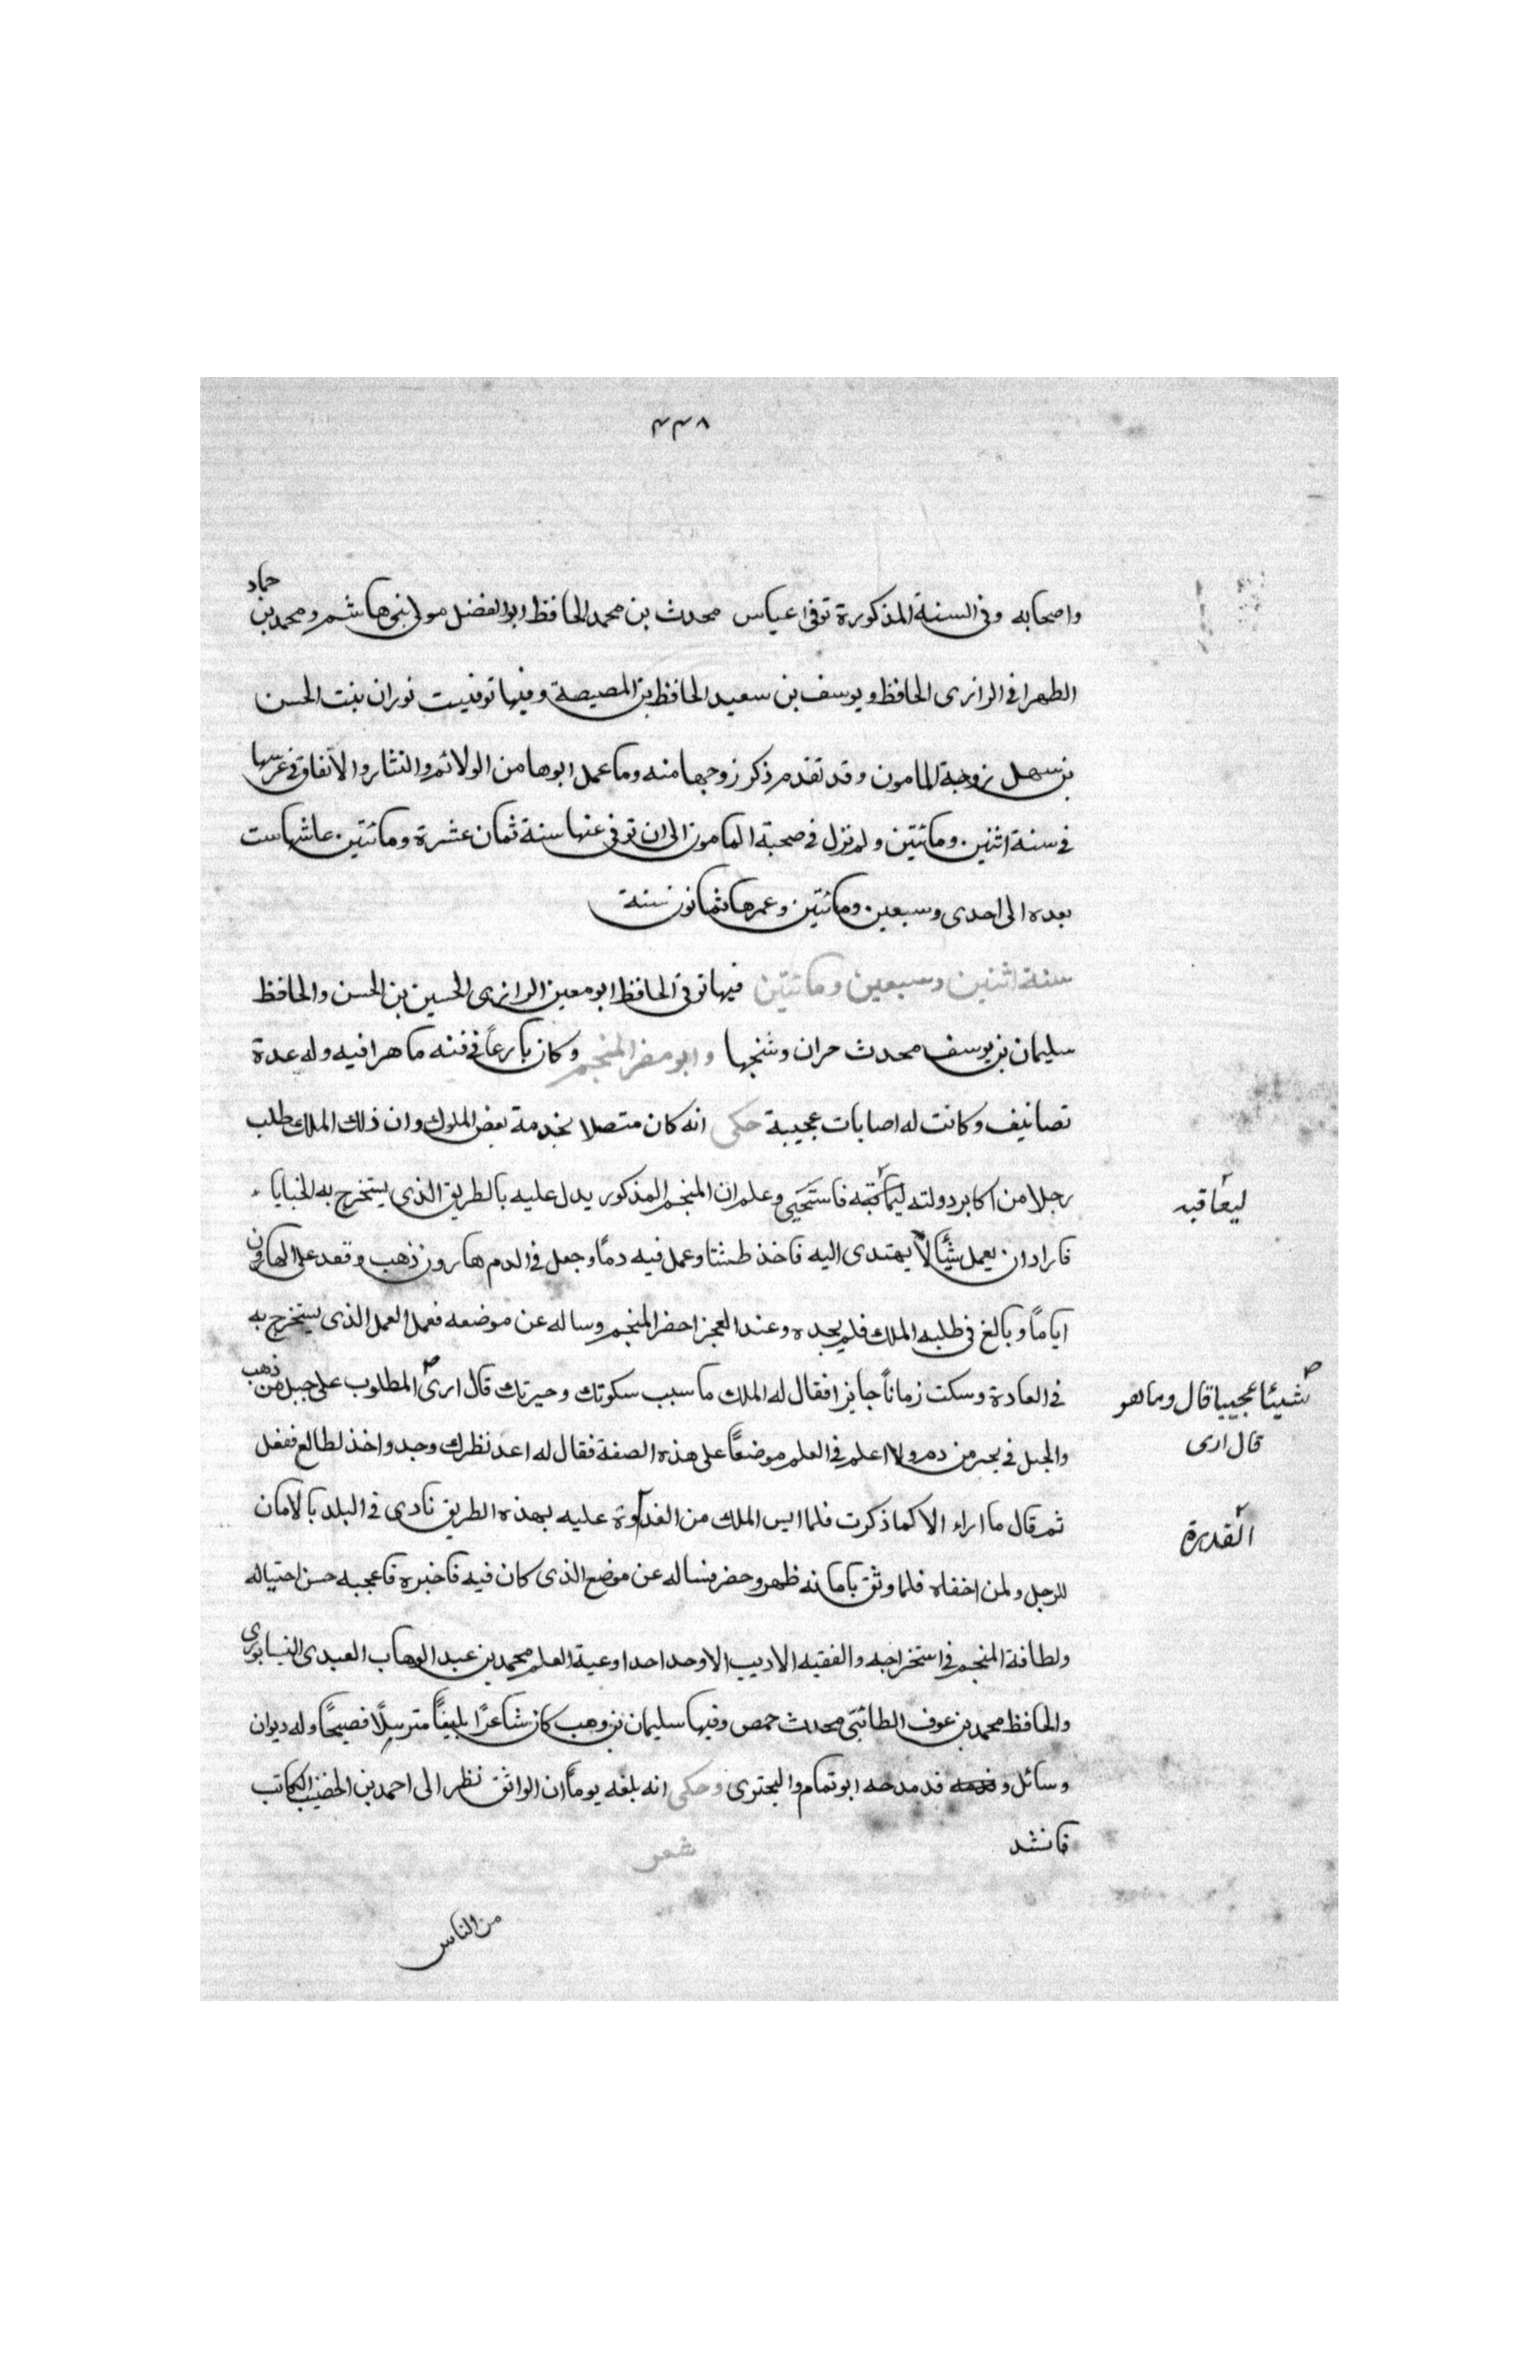 ٤٣٨
واصحابه وفي السنة المذكورة توفى عباس محدث بن محمد الحافظ ابو الفضل مولى بني هاشم ومحمد بن حماد
الطهرانى الرازى الحافظ ويوسف بن سعيد الحافظ بن المصيصة وفيها توفيت نوران بنت الحسن
بن سهل زوجة المامون وقد تقدم ذكر زوجها منه وما عمل ابوها من الولائم والنثار والانفاق في عرسها
في سنة اثنين ومائتين ولم تزل في صحبة المامون الى ان توفى عنها سنة ثمان عشرة ومائتين عاشها ست
بعده الى احدى وسبعين ومائتين وعمرها ثمانون سنة
سنة اثنين وسبعين ومائتين فيها توفى الحافظ ابو معين الرازى الحسين بن الحسن والحافظ
سليمان بن يوسف محدث حران وشيخها وابو معشر المنجم وكان بارعًا في فنه ماهرا فيه وله عدة
تصانيف وكانت له اصابات عجيبة حكى انه كان متصلا بخدمة بعض الملوك وان ذلك الملك طلب
رجلا من اكابر دولته فاستخفى وعلم ان المنجم المذكور يدل عليه بالطريق الذى يستخرج به الخبايا
ليعاقبه
فاراد ان يعمل شيئًا لا يهتدى اليه فاخذ طشتا وعمل فيه دمًا وجعل في الدم هارون ذهب وقعد على الهارون
ايامًا وبالغ في طلبه الملك فلم يجده وعند العجز احضر المنجم وساله عن موضعه فعمل العمل الذى يستخرج به
في العادة وسكت زمانًا جايزا فقال له الملك ما سبب سكوتك وحيرتك قال ارى المطلوب على جبل من ذهب
شيئا عجيبا قال وما هو
قال ارى
والجبل في بحر من دم ولا اعلم في العلم موضعًا على هذه الصفة فقال له اعد نظرك وجدد واخذ لطالع ففعل
ثم قال ما اراه الا كما ذكرت فلما ايس الملك من عليه بهذه الطريق نادى في البلد بالامان
القدرة
للرجل ولمن اخفاه فلما وثق بامانه ظهر وحضر فساله عن موضع الذى كان فيه فاخبره فاعجبه حسن احتياله
ولطافة المنجم في استخراجه والفقيه الاديب الاوحد احد اوعية العلم محمد بن عبد الوهاب العبدى النيسابورى
والحافظ محمد بن عوف الطائىّ محدث حمص وفيها سليمان بن وهب كان شاعرًا بليغًا مترسلًا فصيحًا وله ديوان
وسائل و قد مدحه ابو تمام والبحترى وحكى انه بلغه يومًا ان الواثق نظر الى احمد بن الخضيب الكاتب
فانشد شعر
من الناس